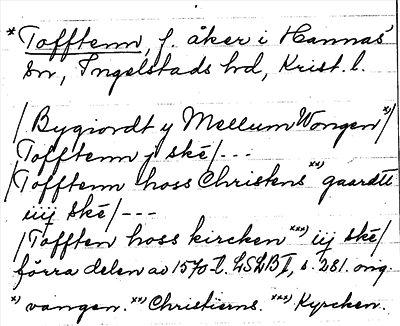 * Tofftenn, f. åker i Hannas
sn, Ingelstads hd, Krist. l.
/ Bygiordt y Mellum Wongen *)/
Tofftenn j ské/---
/Tofftenn hoss Christens **) gaardtt
iiij ské/---
/Tofften hoss kircken ***) iij ské/
förra delen av 1570-t. LSLB I, s. 281. ong.
*) vangen. **) Christierns. ***) Kyrcken.